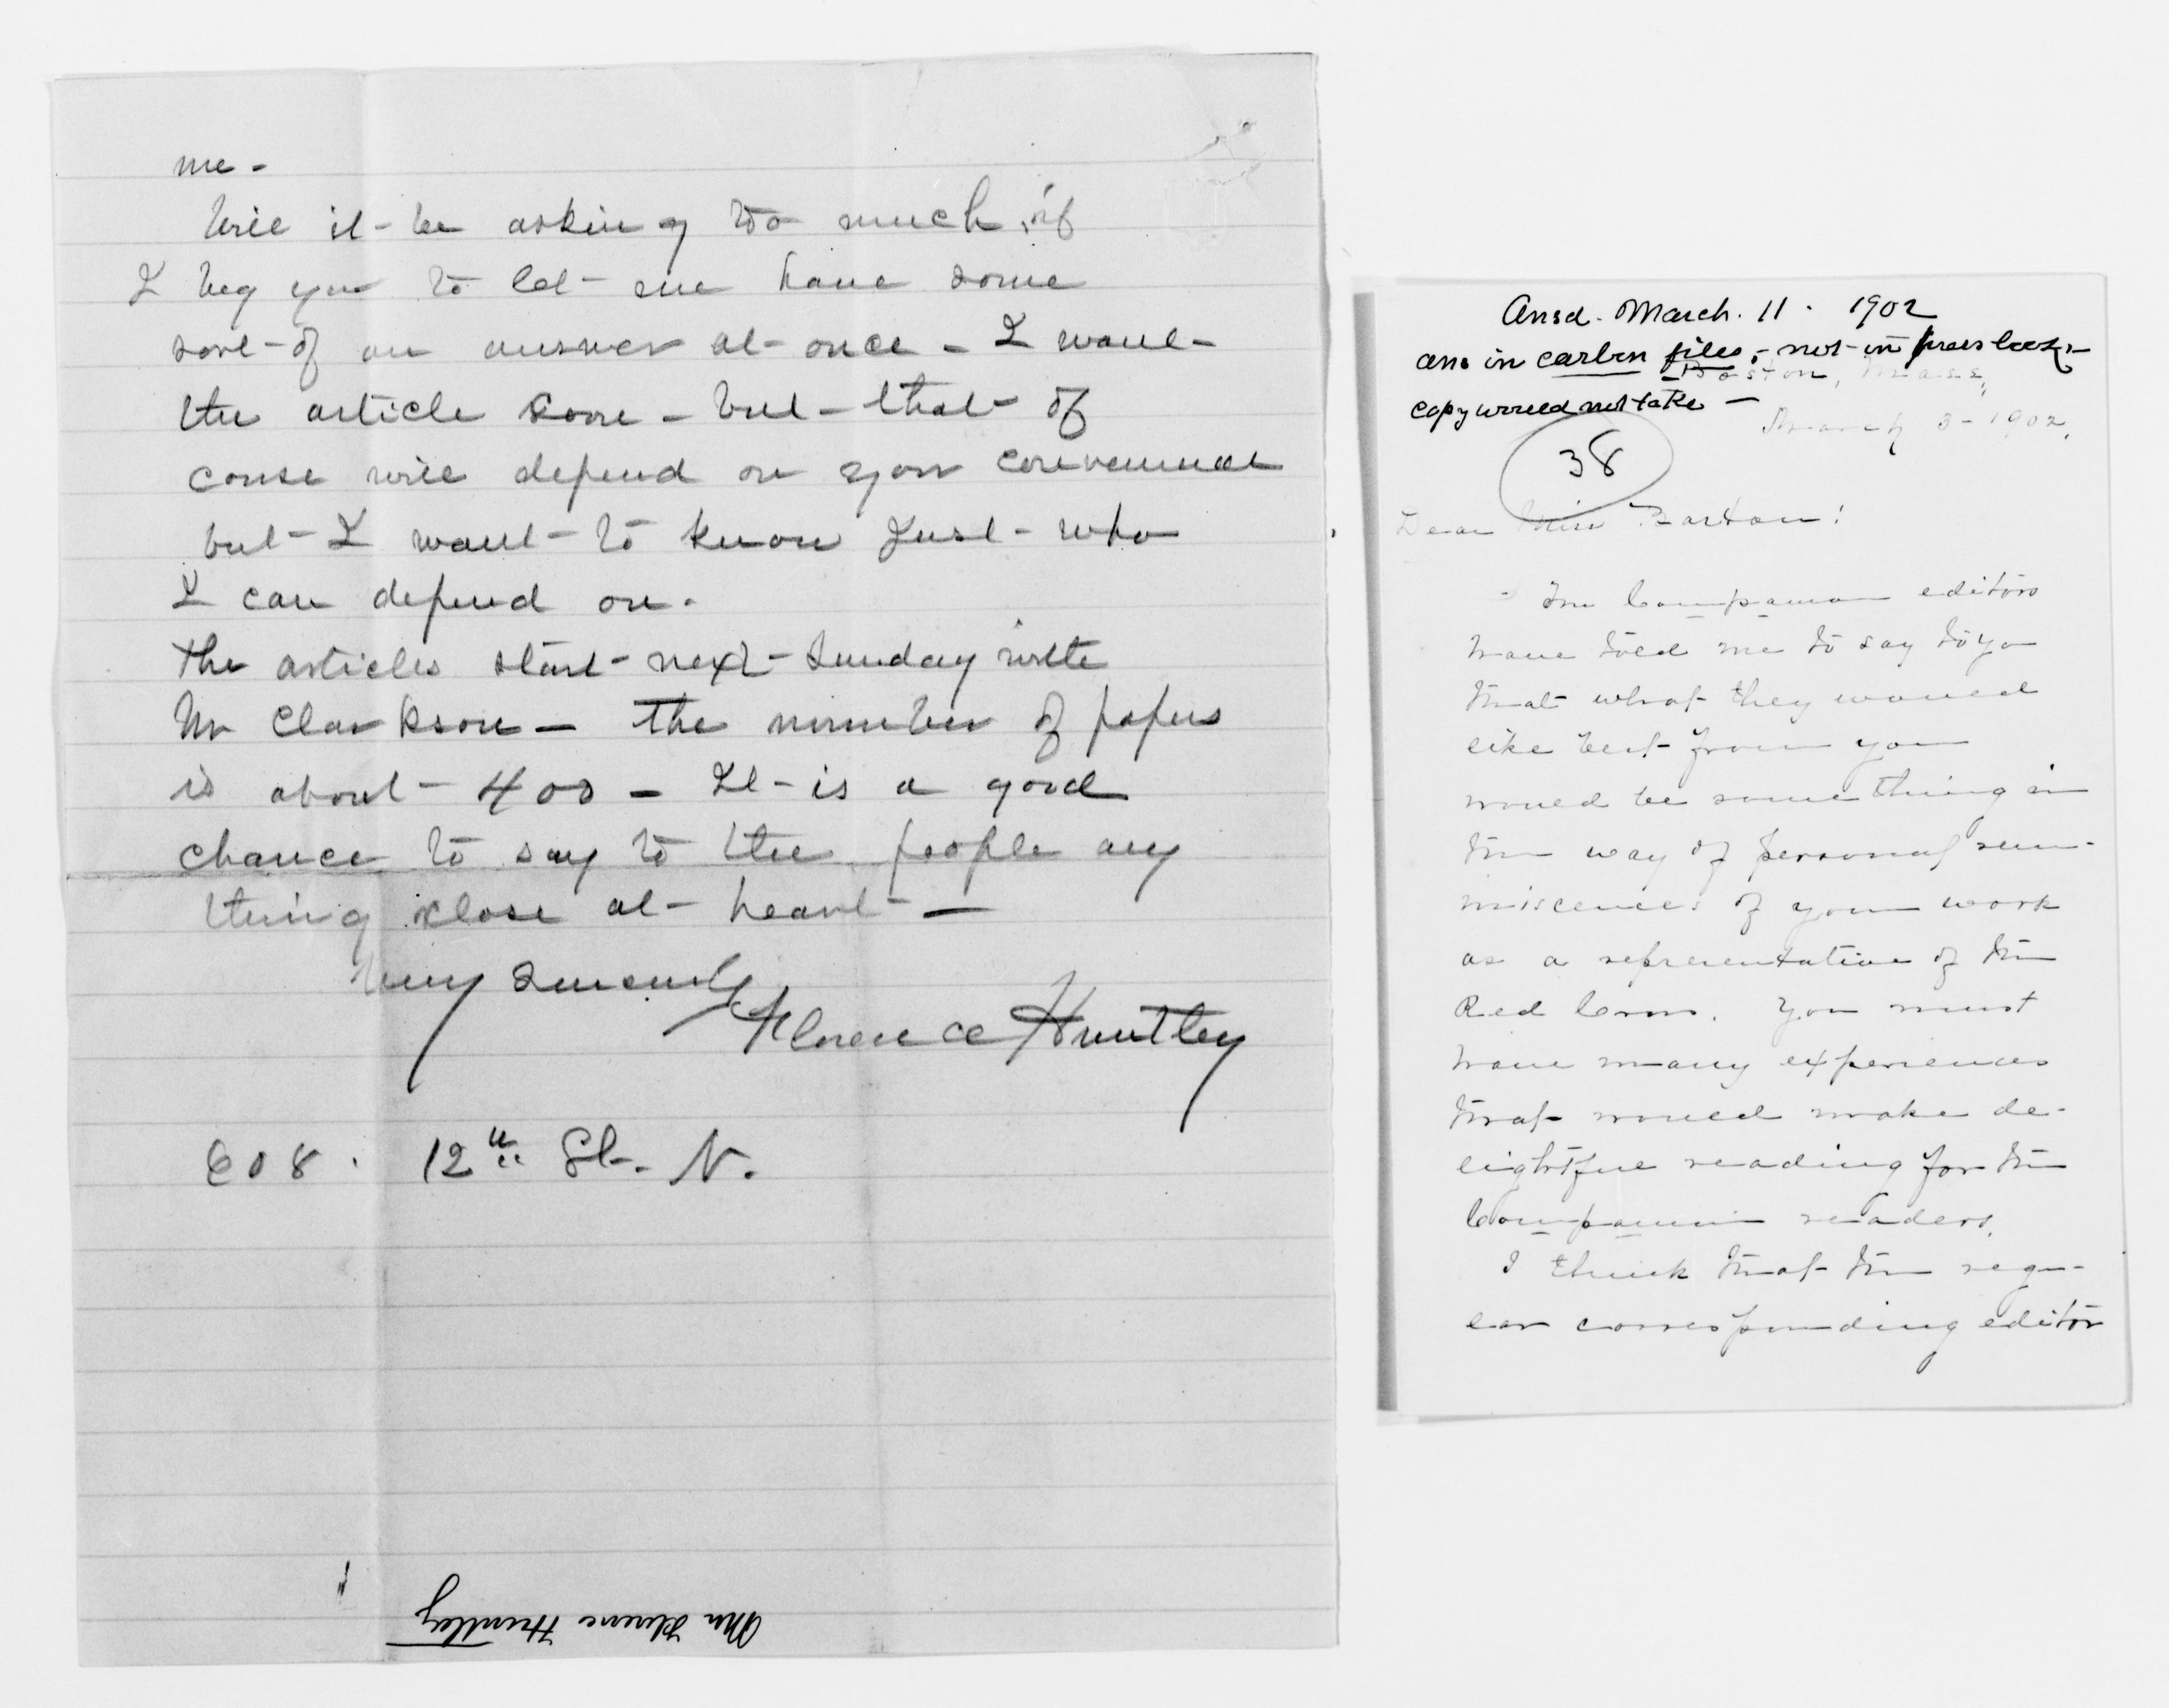 me -
Will it - be asking too much if
I beg you to let - me have some
sort - of an answer at - once - I want -
the article soon - but - that - of
couse will depend on your convenience
but - I want - to know just - who
I can depend on.
The articles start - next - Sunday with
Mr Clarkson - The number of papers
is about - 400 - It - is a good
chance to say to the people any
thing close at - heart -
Very Sincerely
Florence Huntley
608. 12th St. N.
Mrs Florence Huntley
Ansd. March. 11. 1902
ans in carbon files, - not - in press book, -
Boston, Mass,
copy would not take -
March 3 - 1902.
38
Dear Miss Barton:
The Companion editors
have told me to say to you
that what they would
like best from you
would be something in
the way of personal rem-
iniscences of your work
as a representative of the
Red Cross. You must
have many experiences
that would make de-
lightful reading for the
Companion readers.
I think that the regu-
lar corresponding editor